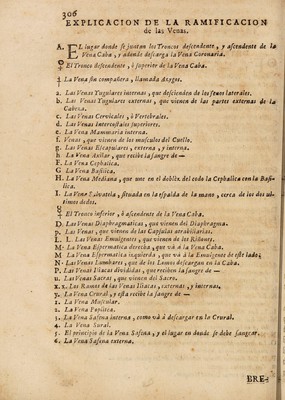 306
EXPLICACION DE LA RAMIFICACION
de las Venas.
A. EL lugar donde se juntan los Troncos descendente, y ascendente de la
Vena Cava, y adonde descarga la Vena Coronaria.
El Tronco descendente, ò superior de la Vena Cava.
3. La Vena sin compañera, llamada Azygos.
a. Las Venas Yugulares internas, que descienden de los senos laterales.
b. Las Venas Yugulares externas, que vienen de las partes externas de la
Cabeza.
c. Las Venas Cervicales, ò Vertebrales.
d. Las Venas Intercostales superiores.
e. La Vena Mammaria interna.
f. Venas, que vienen de los musculos del Cuello.
g. Las Venas Escapulares, externa, y interna.
h. La Vena Axilar, que recibe la sangre de—
F. La Vena Cephalica.
G. La Vena Basilica.
H. La Vena Mediana, que une en el doblèz del codo la Cephalica con la Basi-
lica.
I. La Vena Salvatela, situada en la espalda de la mano, cerca de los dos ul-
timos dedos.
8
El Tronco inferior, ò ascendente de la Vena Cava.
D. Las Venas Diaphragmaticas, que vienen del Diaphragma.
p. Las Venas, que vienen de las Capsulas atrabiliarias.
L. L. Las Venas Emulgentes, que vienen de los Riñones.
M. La Vena Espermatica derecha, que và à la Vena Cava.
M La Vena Espermatica izquierda, que và à la Emulgente de este lado.
N. Las Venas Lumbares, que de los Lomos descargan en la Cava.
P. Las Venas Iliacas divididas, que reciben la sangre de—
u. Las Venas Sacras, que vienen del Sacro.
x.x. Los Ramos de las Venas Iliacas, externas, y internas,
y. La Vena Crural, y esta recibe la sangre de—
1. La Vena Muscular.
2. La Vena Poplitea.
3. La Vena Safena interna, como và à descargar en la Crural.
4. La Vena Sural.
5. El principio de la Vena Safena, y el lugar en donde se debe sangrar.
6. La Vena Safena externa.
BRE-